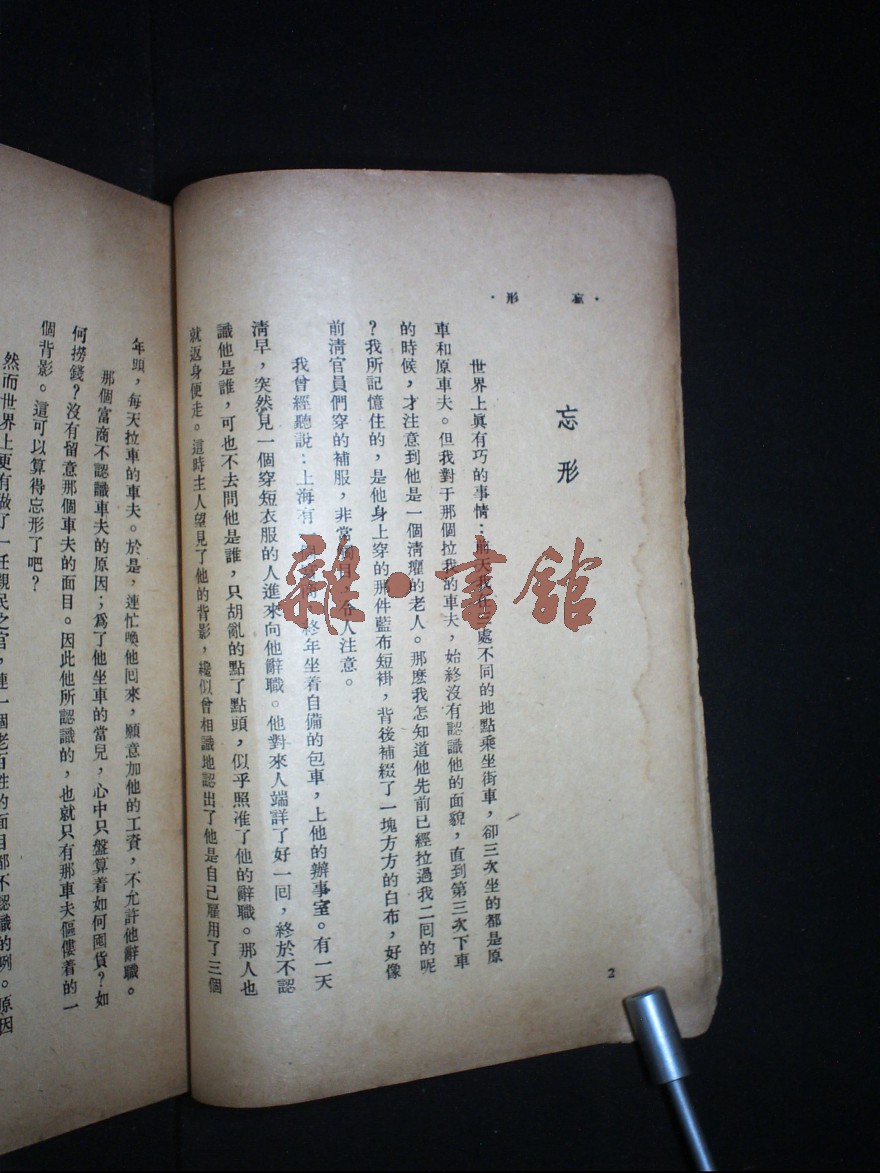 ·忘形·
忘形
世界上眞有巧的事情：前天我在三處不同的地點乘坐街車，卻三次坐的都是原
車和原車夫。但我對于那個拉我的車夫，始終沒有認識他的面貌，直到第三次下車
的時候，才注意到他是一個淸癯的老人。那麽我怎知道他先前已經拉過我二囘的呢
？我所記憶住的，是他身上穿的那件藍布短褂，背後補綴了一塊方方的白布，好像
前淸官員們穿的補服，非常觸目，令人注意。
我曾經聽說：上海有一個富商，終年坐着自備的包車，上他的辦事室。有一天
淸早，突然見一個穿短衣服的人進來向他辭職。他對來人端詳了好一囘，終於不認
識他是誰，可也不去問他是誰，只胡亂的點了點頭，似乎照准了他的辭職。那人也
就返身便走。這時主人望見了他的背影，纔似曾相識地認出了他是自己雇用了三個
2
年頭，每天拉車的車夫。於是，連忙喚他囘來，願意加他的工資，不允許他辭職。
那個富商不認識車夫的原因；爲了他坐車的當兒，心中只盤算着如何囤貨？如
何撈錢？沒有留意那個車夫的面目。因此他所認識的，也就只有那車夫傴僂着的一
個背影。這可以算得忘形了吧？
然而世界上更有做了一任親民之官，連一個老百姓的面目都不認識的咧。原因
雜·書館